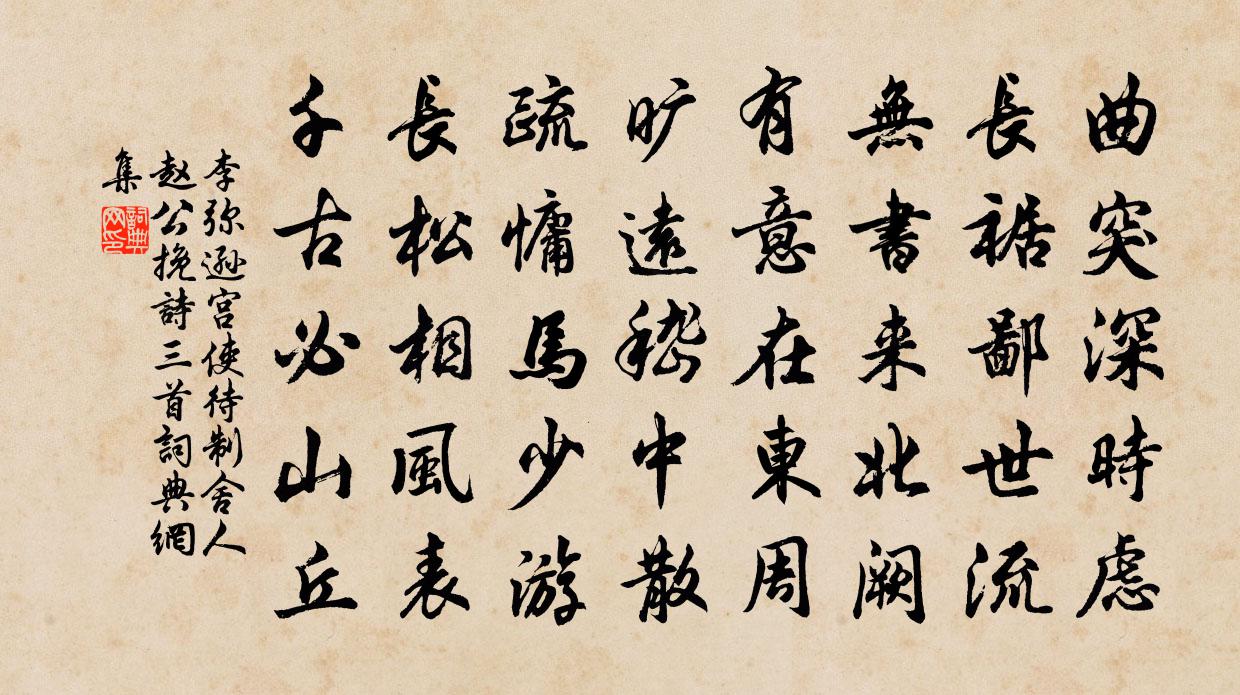 曲突深時慮
長裾鄙世流
無書来北阙
有意在東周
旷遠嵇中散
疏慵馬少游
長松相風表
千古必山丘
李弥遜宫使待制舍人
赵公挽詩三首詞典網
集
詞典
网印